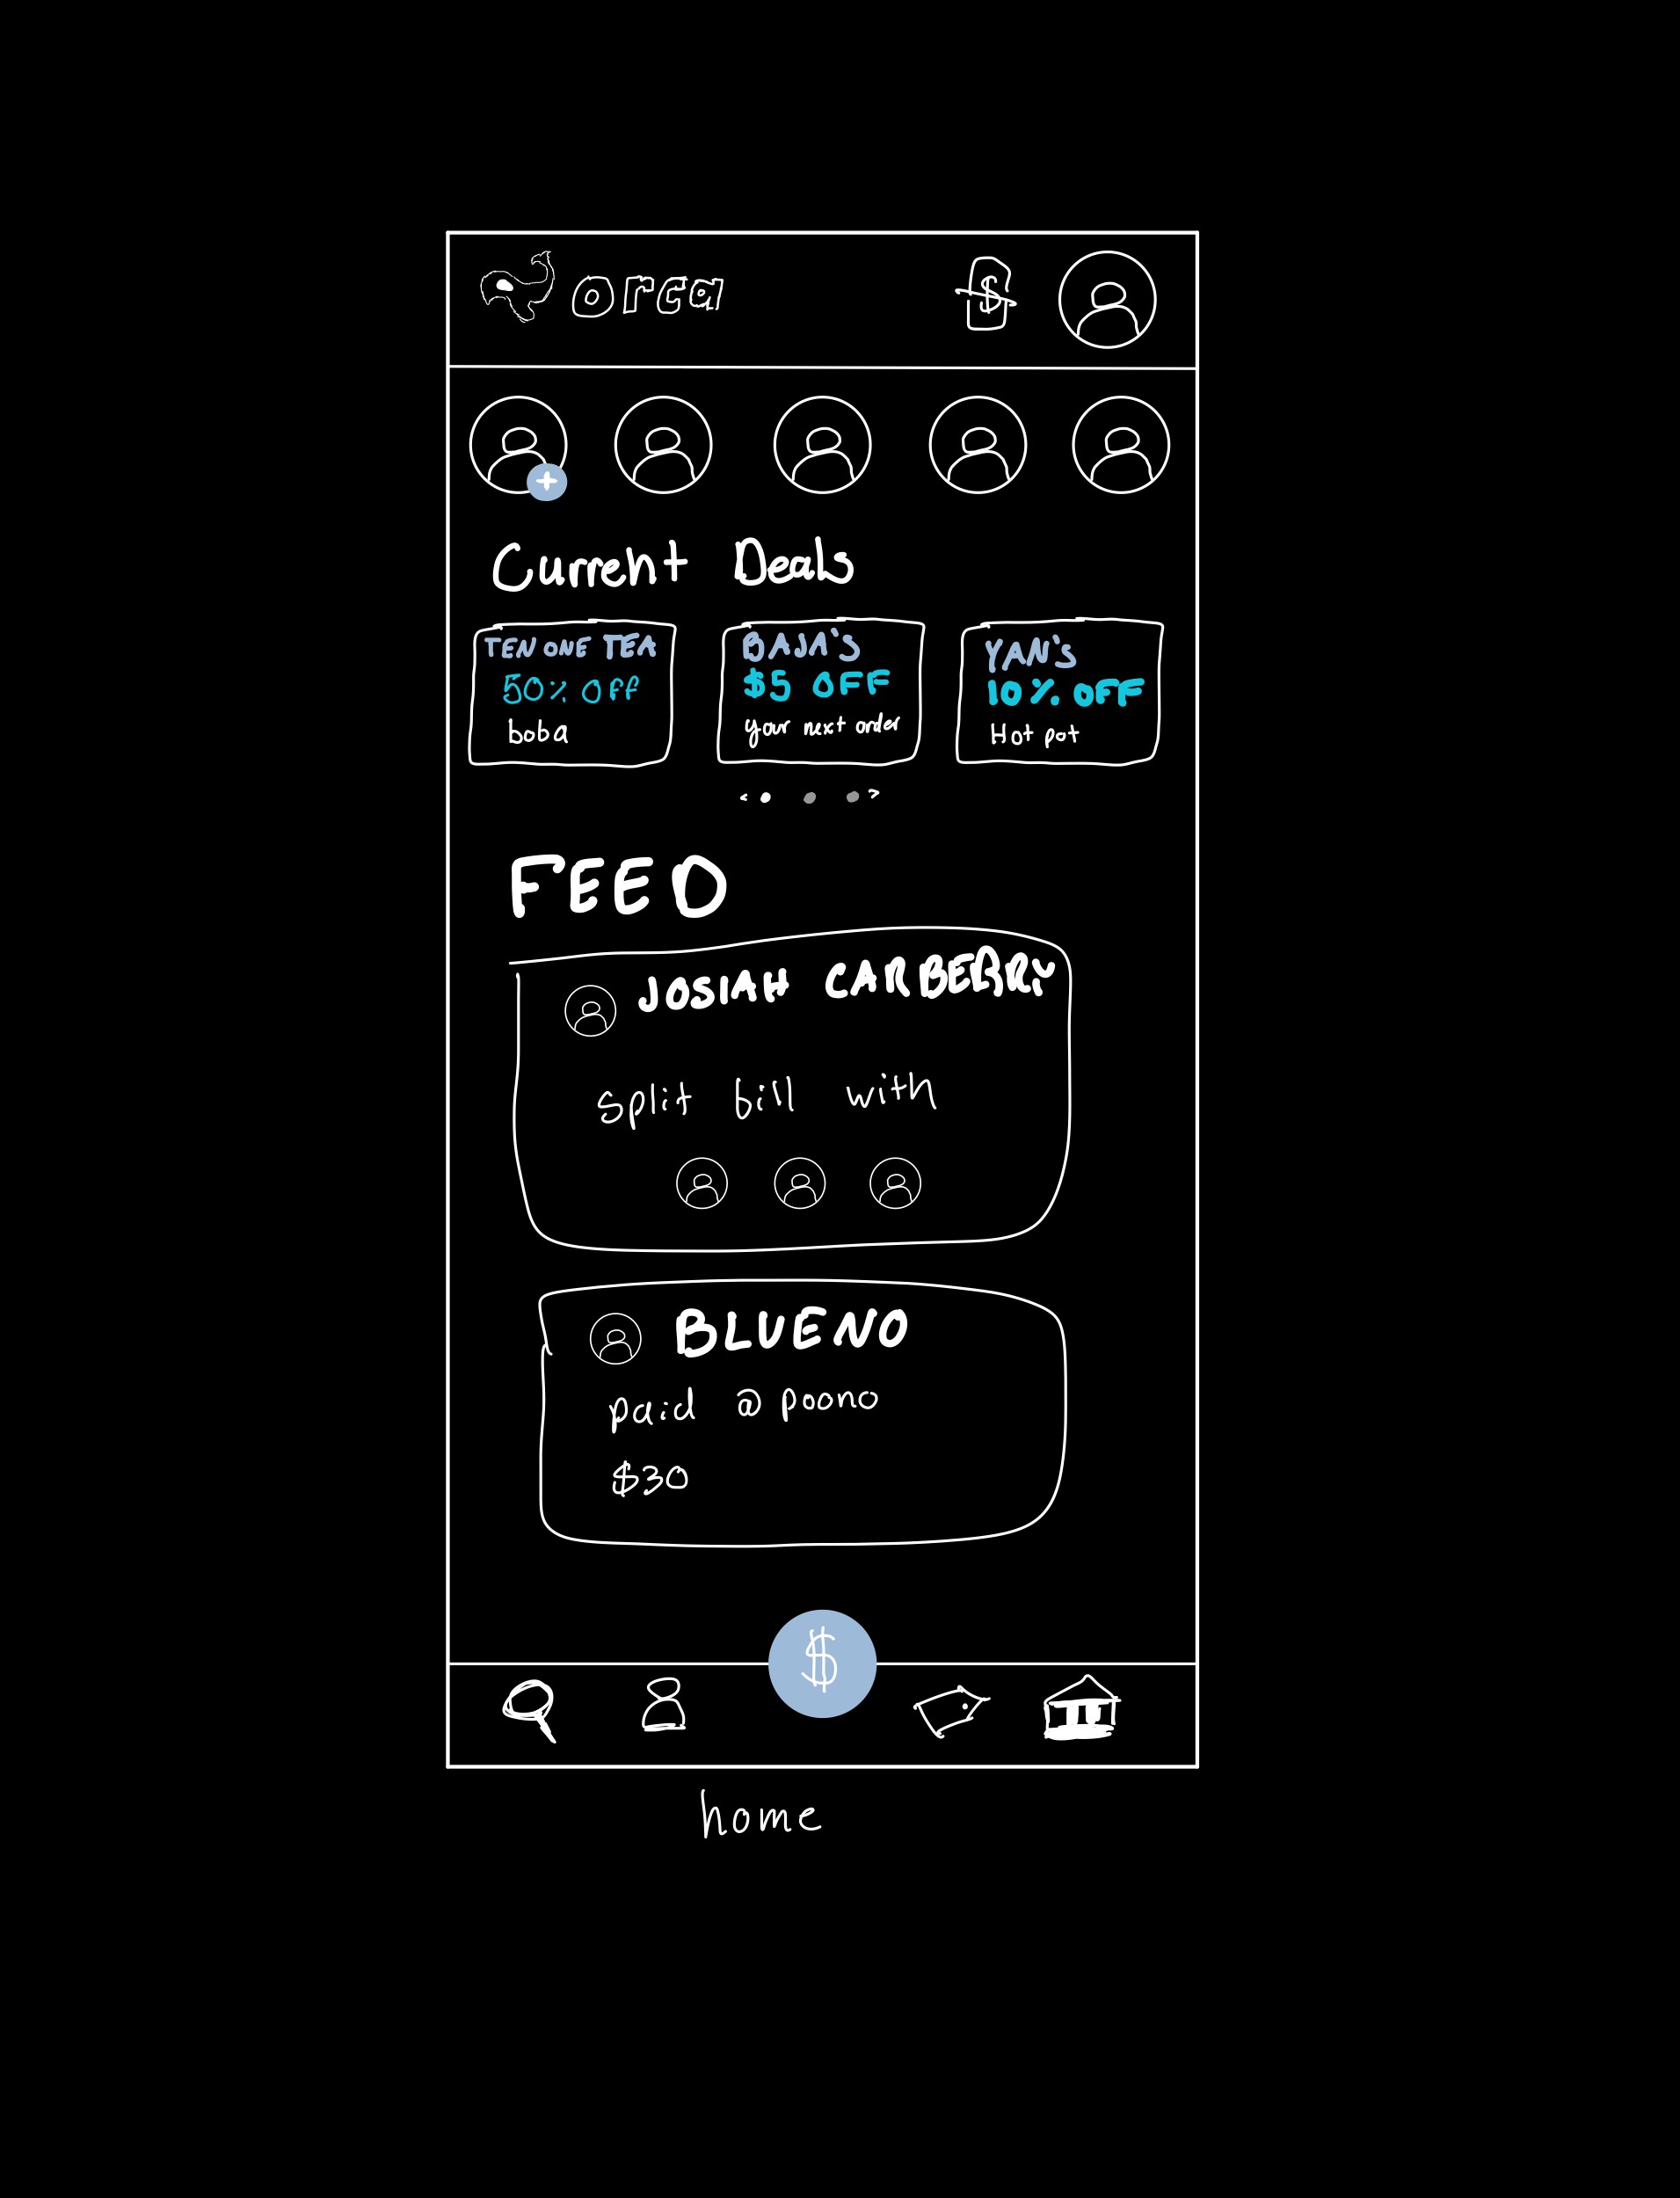 orca
$
+
Current Deals
TEN ONE TEA
50% OFF
boba
BAJA'S
$5 OFF
your next order
YAN'S
10% OFF
Hot pot
< >
FEED
JOSIAH CARBERRY
split bill with
BLUENO
paid @poono
$30
$
home